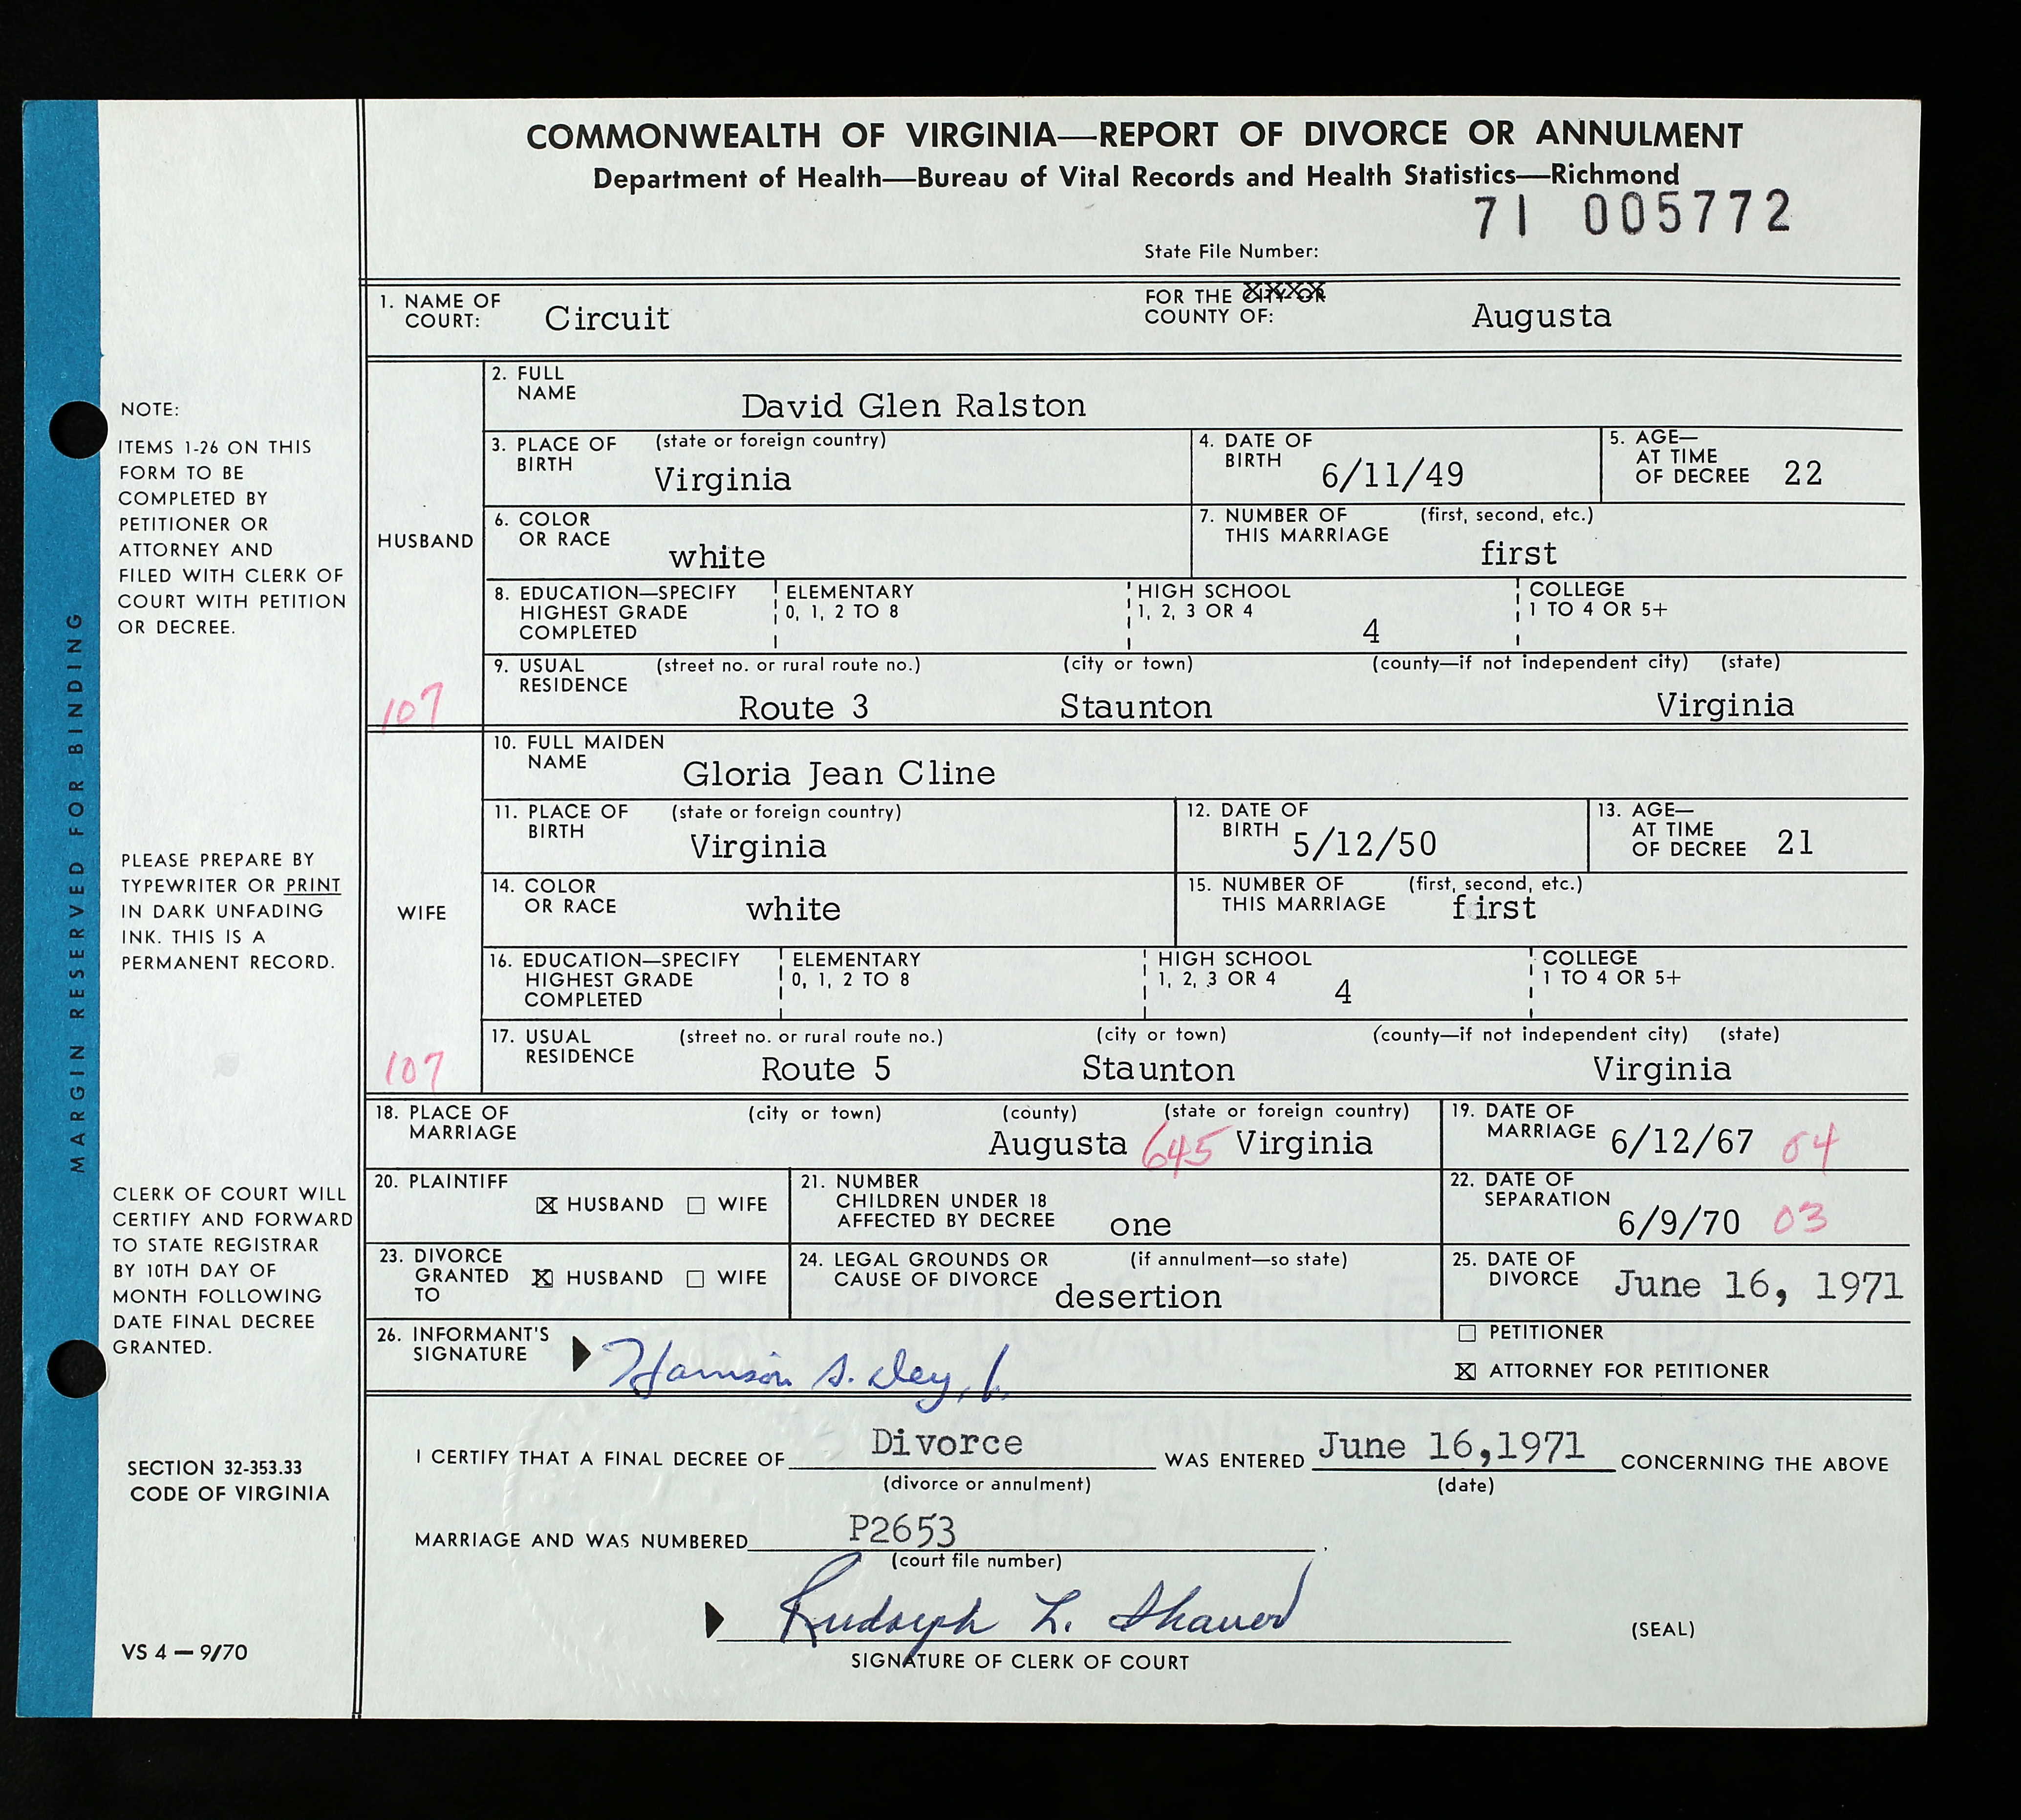 COMMONWEALTH OF VIRGINIA—REPORT OF DIVORCE OR ANNULMENT
Department of Health—Bureau of Vital Records and Health Statistics—Richmond
71 005772
State File Number:
1. NAME OF COURT: Circuit FOR THE CITY OR COUNTY OF: Augusta
HUSBAND
2. FULL NAME David Glen Ralston
3. PLACE OF BIRTH (state or foreign country) Virginia
4. DATE OF BIRTH 6/11/49
5. AGE—AT TIME OF DECREE 22
6. COLOR OR RACE white
7. NUMBER OF THIS MARRIAGE (first, second, etc.) first
8. EDUCATION—SPECIFY HIGHEST GRADE COMPLETED ELEMENTARY 0, 1, 2 TO 8 HIGH SCHOOL 1, 2, 3 OR 4 4 COLLEGE 1 TO 4 OR 5+
9. USUAL RESIDENCE (street no. or rural route no.) (city or town) (county—if not independent city) (state)
107 Route 3 Staunton Virginia
WIFE
10. FULL MAIDEN NAME Gloria Jean Cline
11. PLACE OF BIRTH (state or foreign country) Virginia
12. DATE OF BIRTH 5/12/50
13. AGE—AT TIME OF DECREE 21
14. COLOR OR RACE white
15. NUMBER OF THIS MARRIAGE (first, second, etc.) first
16. EDUCATION—SPECIFY HIGHEST GRADE COMPLETED ELEMENTARY 0, 1, 2 TO 8 HIGH SCHOOL 1, 2, 3 OR 4 4 COLLEGE 1 TO 4 OR 5+
17. USUAL RESIDENCE (street no. or rural route no.) (city or town) (county—if not independent city) (state)
107 Route 5 Staunton Virginia
18. PLACE OF MARRIAGE (city or town) (county) (state or foreign country)
Augusta 645 Virginia
19. DATE OF MARRIAGE 6/12/67 04
20. PLAINTIFF ☒ HUSBAND ☐ WIFE
21. NUMBER CHILDREN UNDER 18 AFFECTED BY DECREE one
22. DATE OF SEPARATION 6/9/70 03
23. DIVORCE GRANTED TO ☒ HUSBAND ☐ WIFE
24. LEGAL GROUNDS OR CAUSE OF DIVORCE (if annulment—so state) desertion
25. DATE OF DIVORCE June 16, 1971
26. INFORMANT'S SIGNATURE Harrison S. Dey,
☐ PETITIONER
☒ ATTORNEY FOR PETITIONER
I CERTIFY THAT A FINAL DECREE OF Divorce WAS ENTERED June 16,1971 CONCERNING THE ABOVE
(divorce or annulment) (date)
MARRIAGE AND WAS NUMBERED P2653
(court file number)
Rudolph L. Shaver
SIGNATURE OF CLERK OF COURT
(SEAL)
MARGIN RESERVED FOR BINDING
NOTE:
ITEMS 1-26 ON THIS
FORM TO BE
COMPLETED BY
PETITIONER OR
ATTORNEY AND
FILED WITH CLERK OF
COURT WITH PETITION
OR DECREE.
PLEASE PREPARE BY
TYPEWRITER OR PRINT
IN DARK UNFADING
INK. THIS IS A
PERMANENT RECORD.
CLERK OF COURT WILL
CERTIFY AND FORWARD
TO STATE REGISTRAR
BY 10TH DAY OF
MONTH FOLLOWING
DATE FINAL DECREE
GRANTED.
SECTION 32-353.33
CODE OF VIRGINIA
VS 4 — 9/70